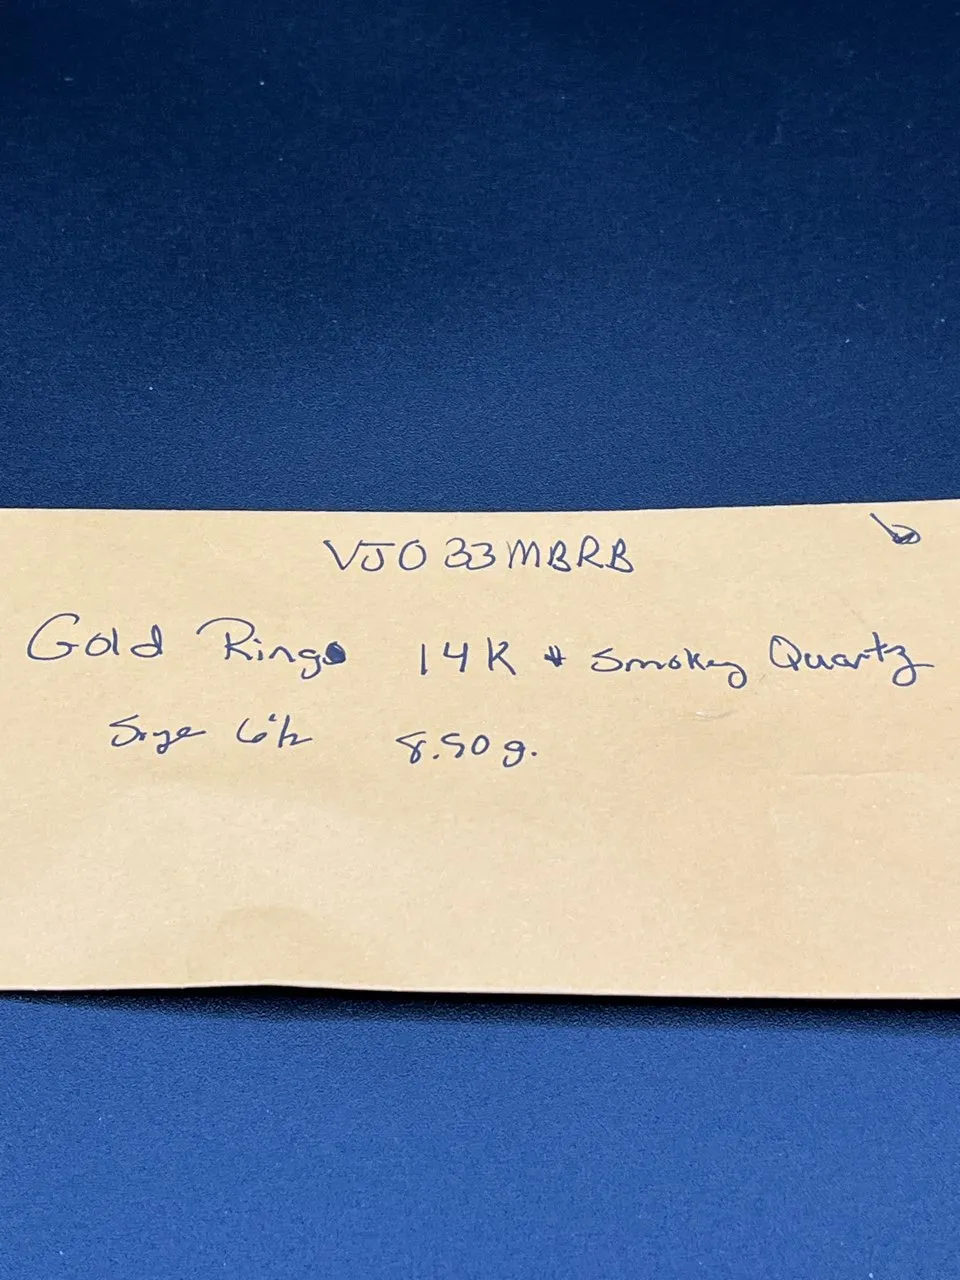 VJO33MBRB
Gold Ring 14K + Smokey Quartz
Size 6 1/2 8.50g.